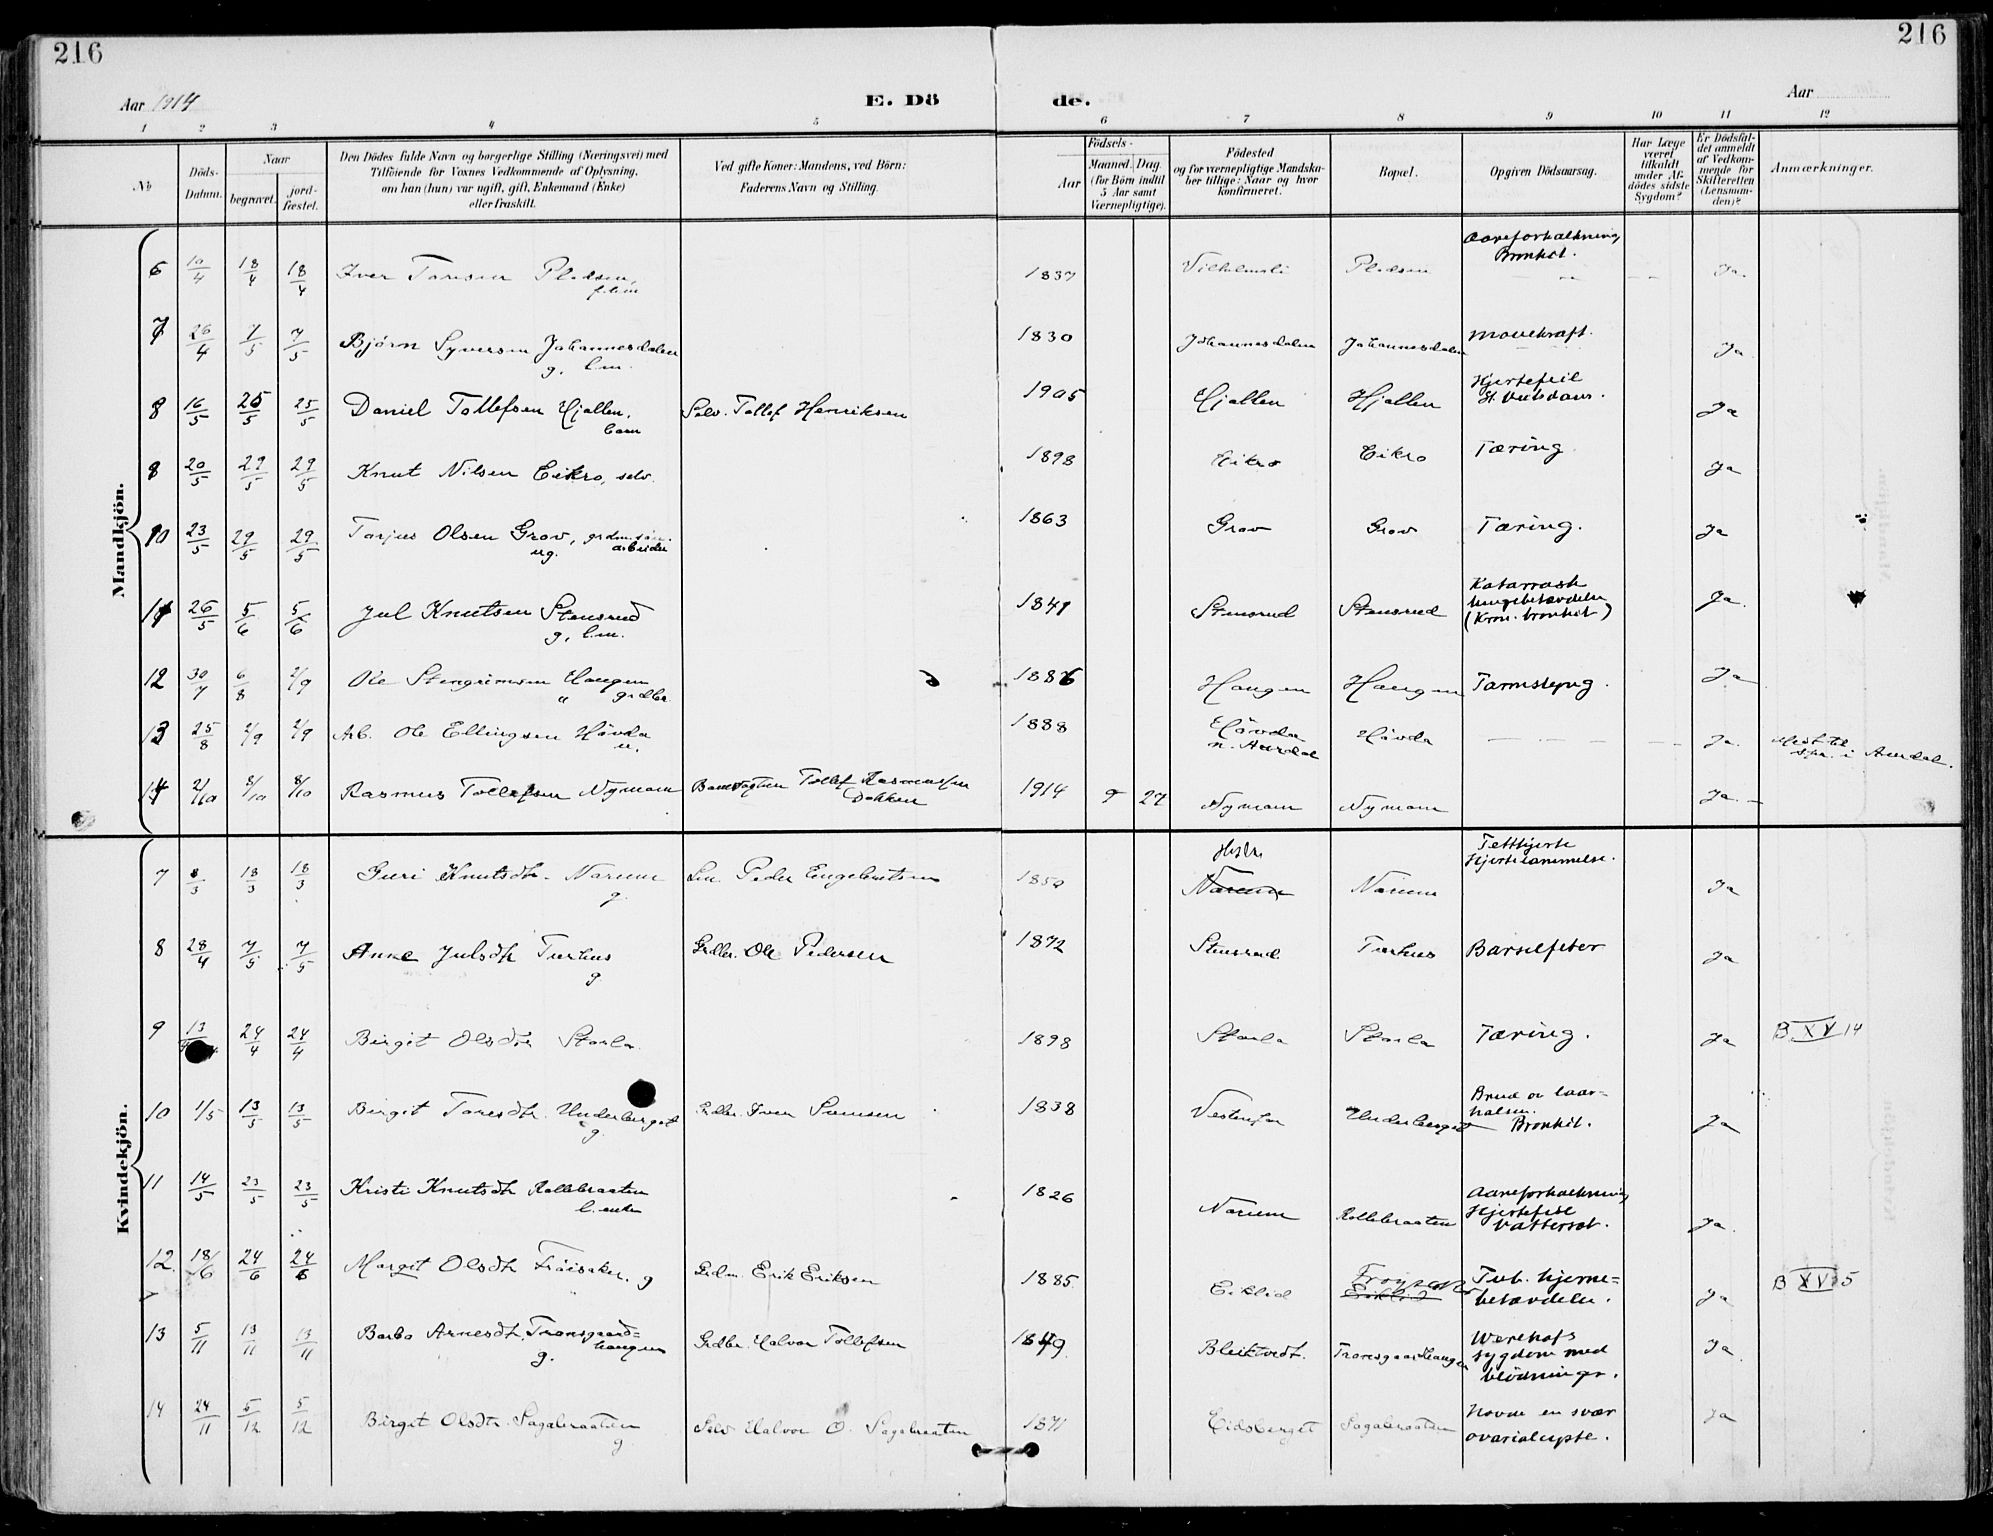 216
216
Aar 1914
E. Dö
de.
Aar
1 2 3 4 5 6 7 8 9 10 11 12
No
Döds-
Datum.
Naar
begravet.
jord-
fæstet.
Den Dödes fulde Navn og borgerlige Stilling (Næringsvei) med
Tilföiende for Voxnes Vedkommende af Oplysning,
om han (hun) var ugift, gift, Enkemand (Enke)
eller fraskilt.
Ved gifte Koner: Mandens, ved Börn:
Faderens Navn og Stilling.
Födsels-
Aar
Maaned. Dag.
(for Börn indtil
5 Aar samt
Værnepligtige).
Födested
og for værnepligtige Mandska-
ber tillige: Naar og hvor
konfirmeret.
Bopæl.
Opgiven Dödsaarsag.
Har Læge
været
tilkaldt
under Af-
dödes sidste
Sygdom?
Er Dödsfal-
det anmeldt
af Vedkom-
mende for
Skifteretten
(Lensman-
den)?
Anmærkninger.
Mandkjön.
6 10/4 18/4 18/4 Iver Toresen Pladsen, 1837 Pladsen Aareforkalkning Bronkit. Ja.
7 26/4 7/5 7/5 Björn Syversen Johannesdalen g. l.m. 1830 Johannesdalen Johannesdalen Ja
8 16/5 25/5 25/5 Daniel Tollefsen Hjallen, barn Selv. Tollef Henriksen 1905 Hjallen Hjallen Hjertefeil St. Veitsdans. Ja
8 20/5 29/5 29/5 Knut Nilsen Eikro, selv. 1898 Eikro Eikro Tæring Ja
10 23/5 29/5 29/5 Torjus Olsen Grov, arbeider ug. 1863 Grov Grov Tæring. Ja
11 26/5 5/6 5/6 Jul Knutsen Stensrud g. l.m. 1841 Stensrud Stensrud Katarralsk lungebetændelse (Kron. bronkit) Ja.
12 30/7 6/8 2/9 Ole Stengrimsen Haugen " grdbr. 1886 Haugen Haugen Ja
13 25/8 2/9 2/9 Arb. Ole Ellingsen Hövda u. 1888 Hövda n. Aurdal Hövda Ja. i Aurdal.
14 2/10 8/10 8/10 Rasmus Tollefsen Nymoen Tollef Rasmussen Dokken 1914 9 27 Nymoen Nymoen Ja.
Kvindekjön.
7 8/3 18/3 18/3 Guri Knutsdtr. Narum g. Lm. Peder Engebretsen 1850 Narum Narum Fetthjerte Hjertelammelse. Ja
8 28/4 7/5 7/5 Anne Julsdtr Turhus g Grdbr. Ole Pedersen 1872 Stensrud Turhus Barselfeber Ja
9 13 24/4 24/4 Birgit Olsdtr Storla 1898 Storla Storla Tæring. Ja B XV 14
10 1/5 13/5 13/5 Birgit Toresdtr. Underberget g. Grdbr. Iver 1838 Underberget Brud av laar-halsen. Bronkit. Ja
11 14/5 23/5 23/5 Kristi Knutsdtr Rollebraaten l. enke 1826 Narum Rollebraaten Aareforkalkning Hjertefeil Vattersot. Ja.
12. 18/6 24/6 24/6 Margit Olsdtr Fröisaker. g Grdm. Erik Eriksen 1885 Eiklid Eiklid Tub. hjerne= betændelse. Ja B XV 5
13 5/11 13/11 13/11 Barbo Arnesdtr. Transgaard= haugen g. Grdbr. Halvor Tollefsen 1849 Bleiktvedt. sygdom med blödninger. Ja
14 24/11 5/12 5/12 Birgit Olsdtr. Sagabraaten g Selv Halvor O. Sagabraaten 1871 Eidsberget Sagabraaten Havde en svær ovarialcyste. Ja